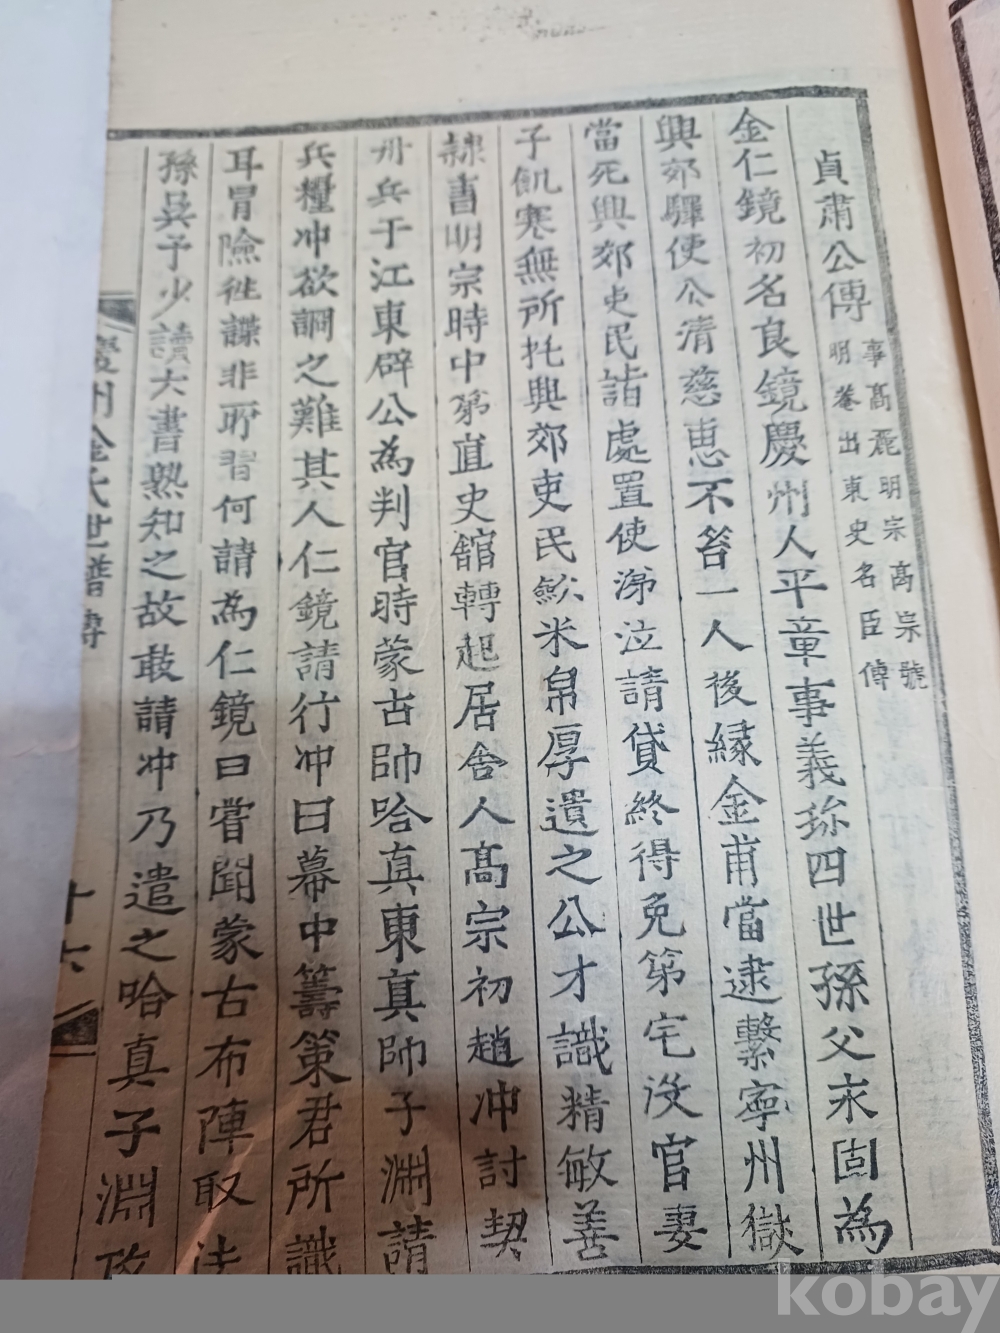 貞肅公傳 事高麗明宗高宗號
明卷出東史名臣傳
金仁鏡初名良鏡慶州人平章事義珎四世孫父永固為
興郊驛使公清慈惠不笞一人後緣金甫當逮繫寧州獄
當死興郊吏民詣處置使涕泣請貸終得免第宅沒官妻
子飢寒無所托興郊吏民歛米帛厚遺之公才識精敏善
隷書明宗時中第直史舘轉起居舍人高宗初趙冲討契
丹兵于江東辟公為判官時蒙古帥哈真東真帥子淵請
兵糧冲欲詗之難其人仁鏡請行冲曰幕中籌策君所識
耳冒險徃諜非所習何請為仁鏡曰嘗聞蒙古布陣取法
孫吳予少讀六書熟知之故敢請冲乃遣之哈真子淵攻
慶州金氏世譜 傳 十六
kobay